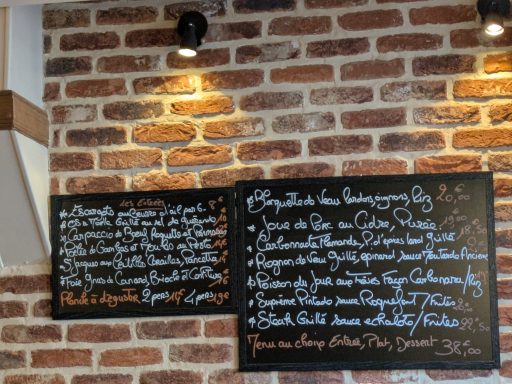 Les Entrées
Escargots au beurre d'ail par 6. 8€
Os à Moelle Grillé au sel de Guérande
Carpaccio de Boeuf Roquette et Parmesan
Poêlée de Gambas et
St Jacques aux
Foie Gras de Canard, Brioche et Confiture
Planche à déguster 2 pers 14€ 4 pers 19€
Blanquette de Veau lardons, oignons, Riz 20,00€
Joue de Porc au Cidre, Purée 19,00
Carbonnade Flamande, P. d'épices lard Grillé 18,50
Rognon de Veau Grillé, épinard sauce Moutarde Ancienne
Poisson du Jour aux Façon Carbonara/Riz
Suprême Pintade sauce Roquefort/Frites
Steak Grillé sauce echalote/Frites 22,50
Menu au choix Entrée, Plat, Dessert 38,00€